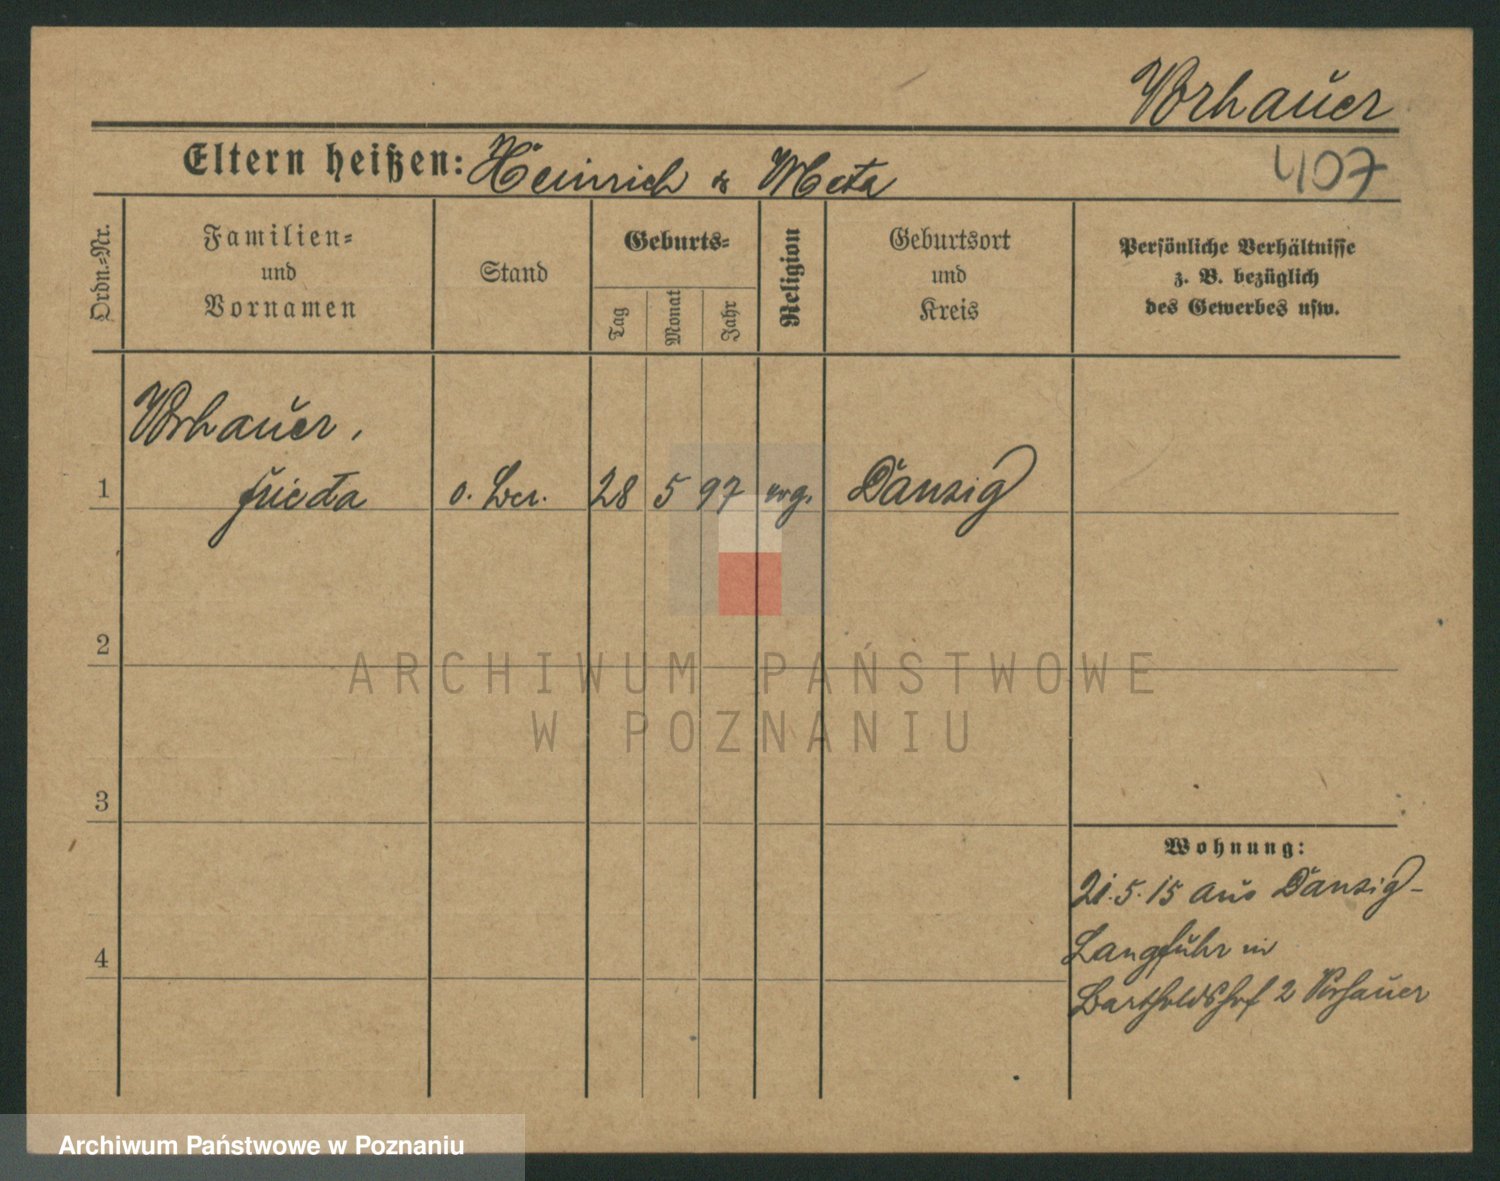 Vorhauer
Eltern heißen: Heinrich & Meta
407
Ordn.-Nr.
Familien-
und
Vornamen
Stand
Geburts-
Tag
Monat
Jahr
Religion
Geburtsort
und
Kreis
Persönliche Verhältnisse
z. B. bezüglich
des Gewerbes usw.
Vorhauer,
1 Frieda o. Ber. 28 5 97 evg. Danzig
2
3
4
Wohnung:
21.5.15 aus Danzig-
Langfuhr in
Bartholdshof 2 Vorhauer
ARCHIWUM PAŃSTWOWE
W POZNANIU
Archiwum Państwowe w Poznaniu